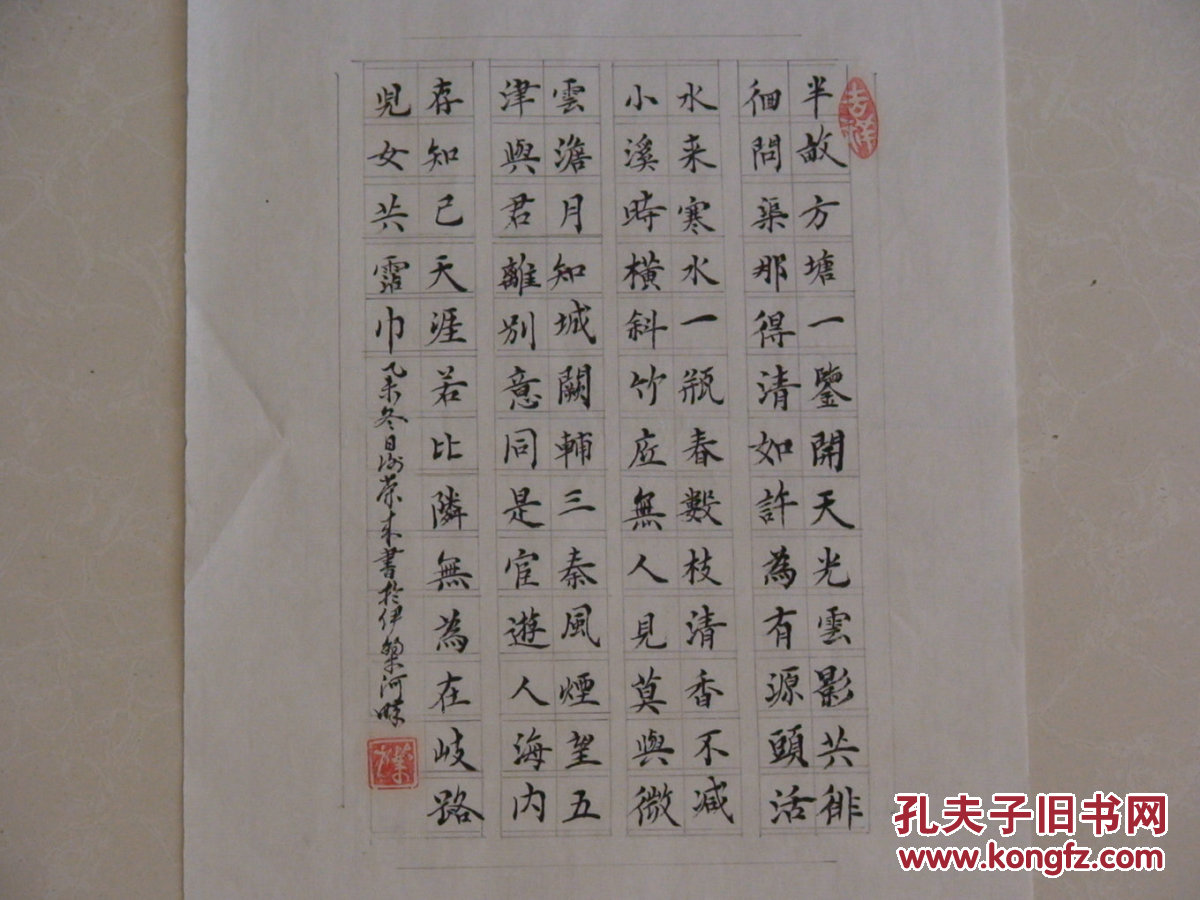 吉祥
半畝方塘一鑒開天光雲影共徘
徊問渠那得清如許為有源頭活
水来寒水一瓶春數枝清香不減
小溪時橫斜竹底無人見莫與微
雲澹月知城闕輔三秦風煙望五
津與君離別意同是宦遊人海内
存知己天涯若比隣無為在岐路
兒女共霑巾乙未冬日谢荣来書於伊犂河畔
孔夫子旧书网
www.kongfz.com